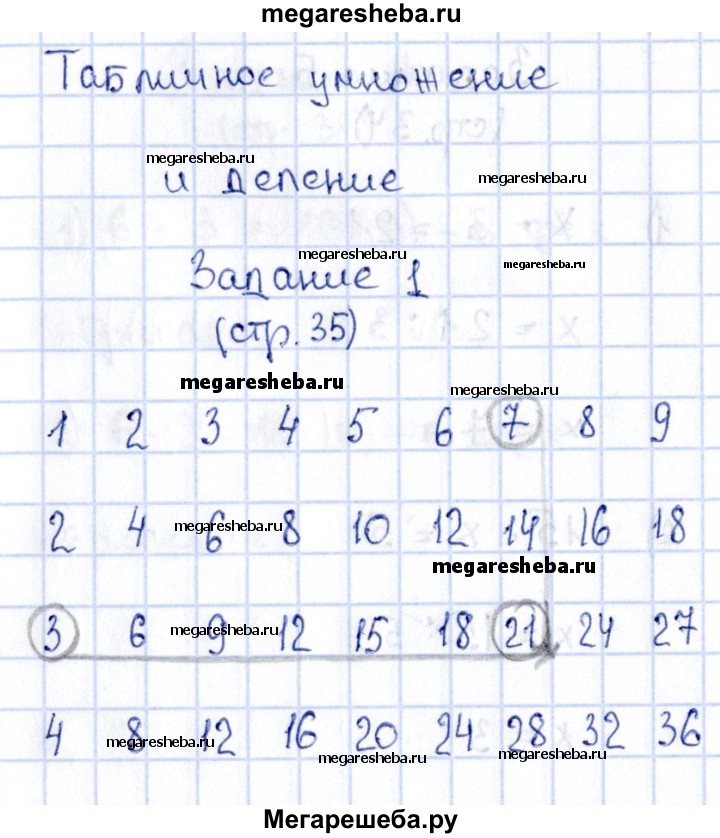 megaresheba.ru
Табличное умножение
megaresheba.ru
и деление
megaresheba.ru
megaresheba.ru
Задание 1
megaresheba.ru
(стр. 35)
megaresheba.ru
megaresheba.ru
1 2 3 4 5 6 7 8 9
2 4 6 8 10 12 14 16 18
megaresheba.ru
megaresheba.ru
3 6 9 12 15 18 21 24 27
megaresheba.ru
4 8 12 16 20 24 28 32 36
megaresheba.ru
megaresheba.ru
megaresheba.ru
Мегарешеба.ру